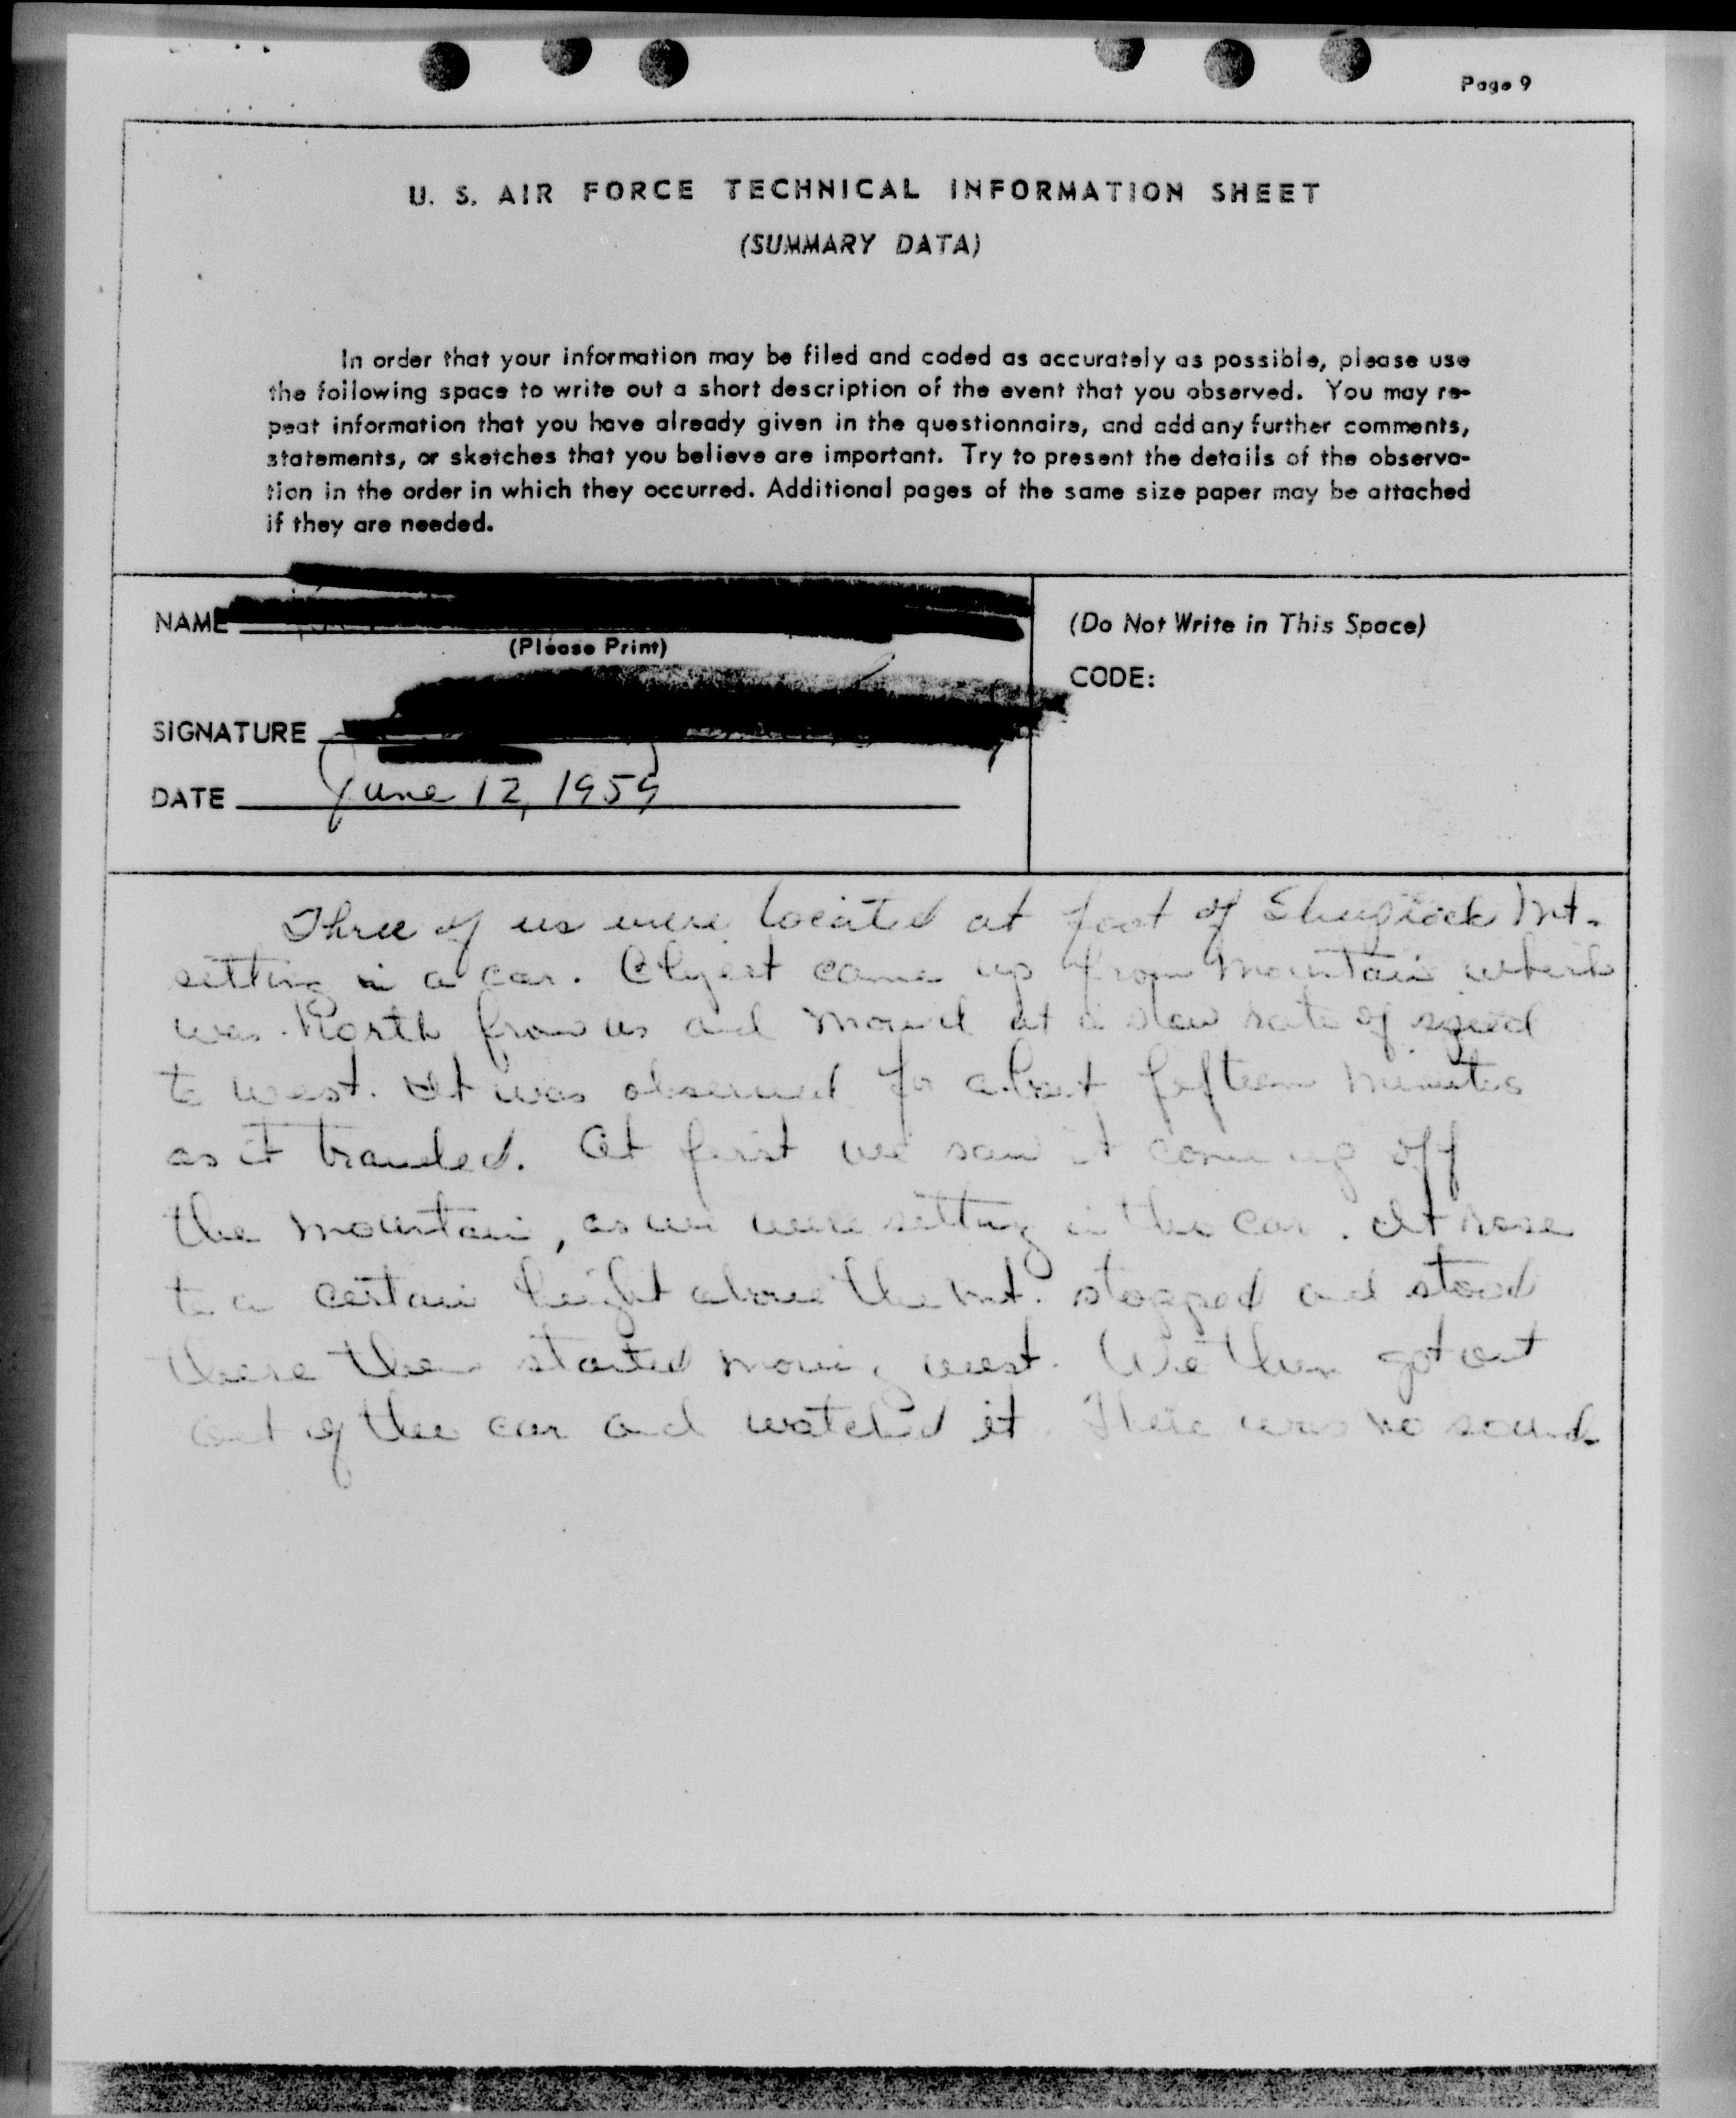 Page 9
U. S. AIR FORCE TECHNICAL INFORMATION SHEET
(SUMMARY DATA)
In order that your information may be filed and coded as accurately as possible, please use
the following space to write out a short description of the event that you observed. You may re-
peat information that you have already given in the questionnaire, and add any further comments,
statements, or sketches that you believe are important. Try to present the details of the observa-
tion in the order in which they occurred. Additional pages of the same size paper may be attached
if they are needed.
NAME
(Please Print)
SIGNATURE
DATE June 12, 1959
(Do Not Write in This Space)
CODE:
Three of us were located at foot of Mt.
setting in a car. Object came up from mountain which
was North from us and moved at a slow rate of speed
to west. It was observed for about fifteen minutes
as it traveled. At first we saw it come up off
the mountain, as we were setting in the car. It rose
to a certain height above the mt. stopped and stood
there then started moving west. We then got out
out of the car and watched it. There was no sound.